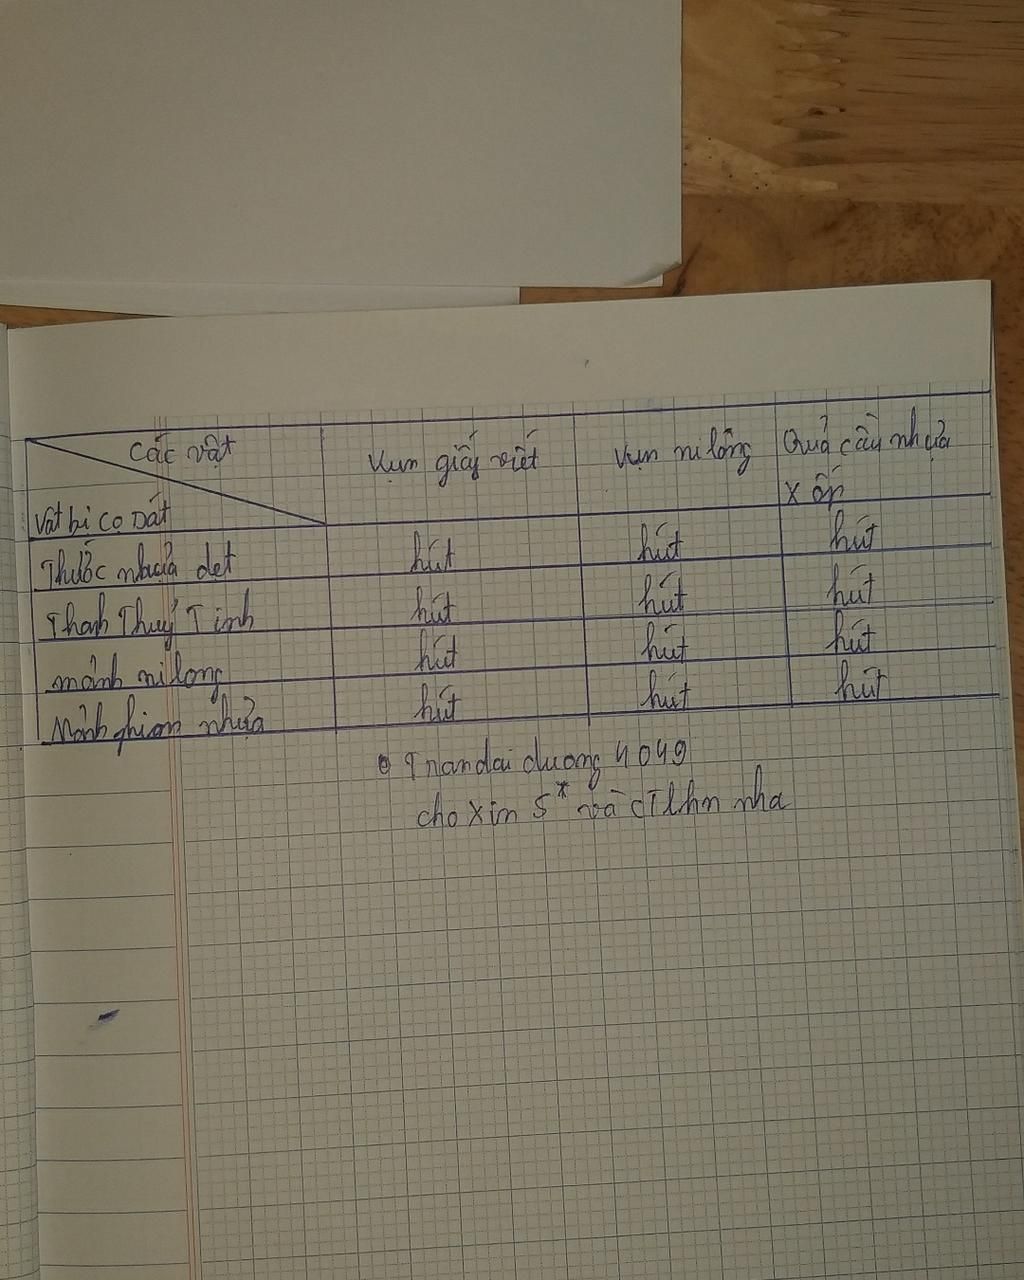 Các vật
Vụn giấy viết
Vụn ni lông
Quả cầu nhựa
xốp
Vật bị cọ xát
Thước nhựa dẹt
hút
hút
hút
Thanh Thuỷ Tinh
hút
hút
hút
mảnh ni long
hút
hút
hút
Mảnh phim nhựa
hút
hút
hút
Trandai duong 4049
cho xin 5* và ctlhn nha